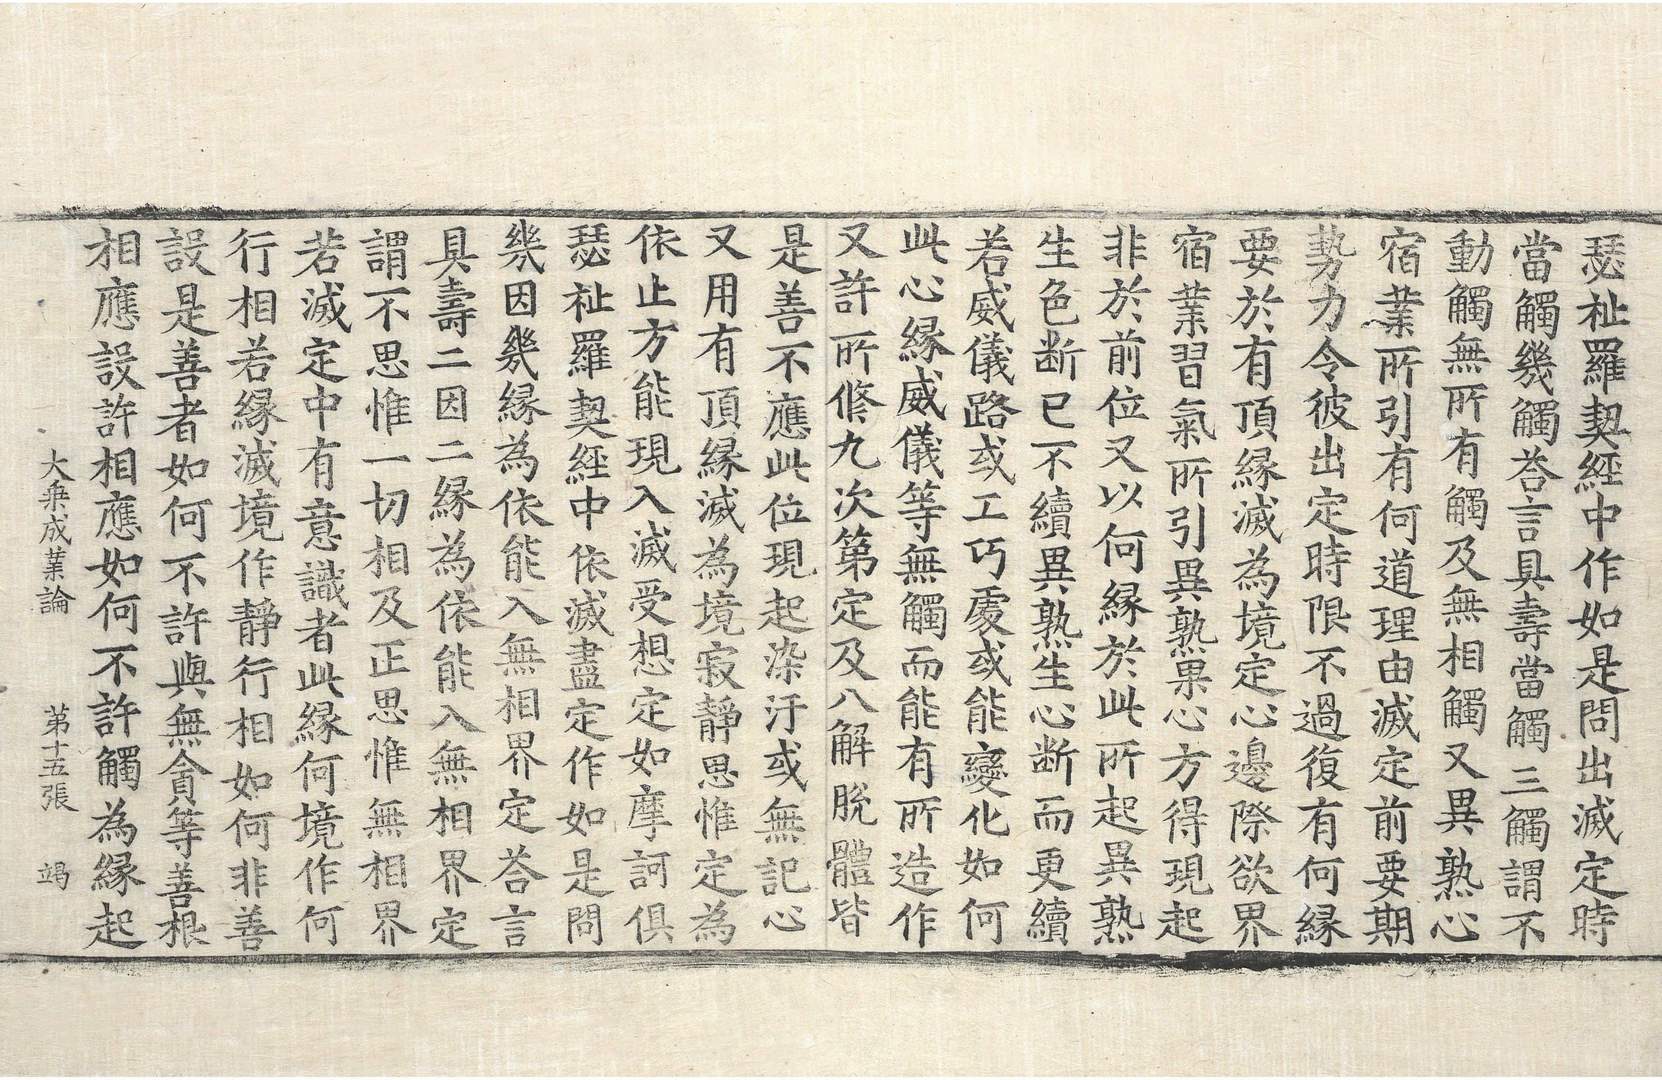 瑟祉羅契經中作如是問出滅定時
當觸幾觸荅言具壽當觸三觸謂不
動觸無所有觸及無相觸又異熟心
宿業所引有何道理由滅定前要期
勢力令彼出定時限不過復有何縁
要於有頂縁滅為境定心邊際欲界
宿業習氣所引異熟果心方得現起
非於前位又以何縁於此所起異熟
生色断已不續異熟生心断而更續
若威儀路或工巧處或能變化如何
此心縁威儀等無觸而能有所造作
又許所修九次第定及八解脫體皆
是善不應此位現起染汙或無記心
又用有頂縁滅為境寂靜思惟定為
依止方能現入滅受想定如摩訶俱
瑟祉羅契經中依滅盡定作如是問
幾因幾縁為依能入無相界定荅言
具壽二因二縁為依能入無相界定
謂不思惟一切相及正思惟無相界
若滅定中有意識者此縁何境作何
行相若縁滅境作靜行相如何非善
設是善者如何不許與無貪等善根
相應設許相應如何不許觸為縁起
大乗成業論　第十五張　竭